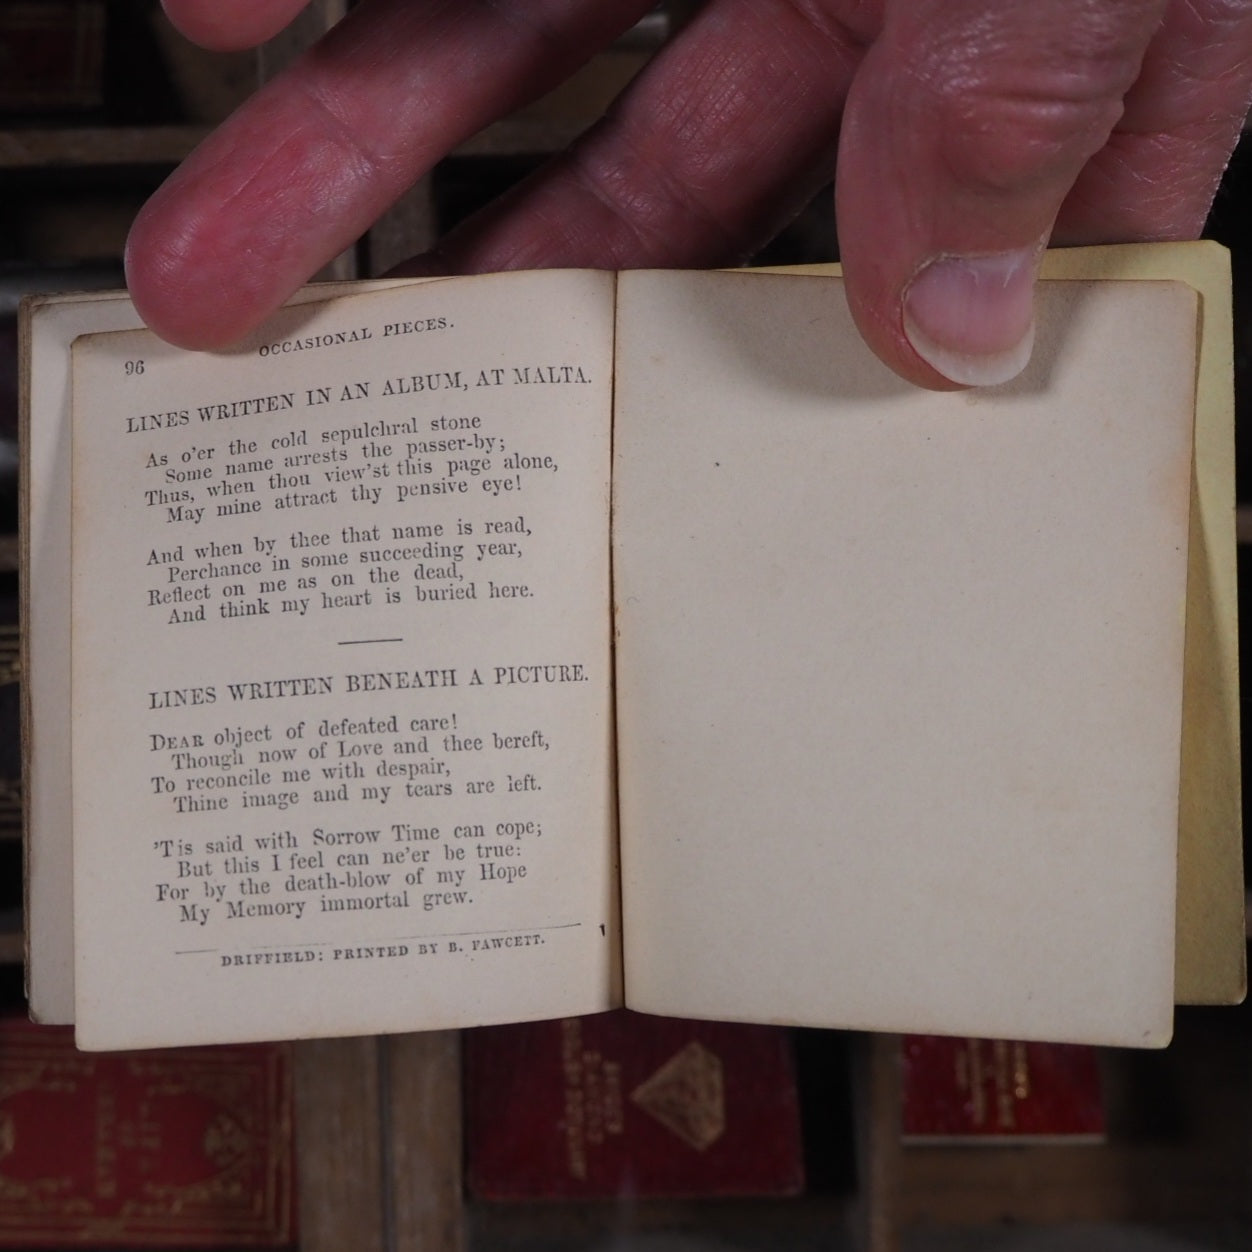 OCCASIONAL PIECES.
96
LINES WRITTEN IN AN ALBUM, AT MALTA.
As o'er the cold sepulchral stone
Some name arrests the passer-by;
Thus, when thou view'st this page alone,
May mine attract thy pensive eye!
And when by thee that name is read,
Perchance in some succeeding year,
Reflect on me as on the dead,
And think my heart is buried here.
LINES WRITTEN BENEATH A PICTURE.
DEAR object of defeated care!
Though now of Love and thee bereft,
To reconcile me with despair,
Thine image and my tears are left.
'Tis said with Sorrow Time can cope;
But this I feel can ne'er be true:
For by the death-blow of my Hope
My Memory immortal grew.
DRIFFIELD: PRINTED BY B. FAWCETT.